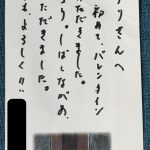 りさんへ
初めて、バレンタイン
いただきました。
り。しばしながめ、
ただきました。
も、よろしく!!